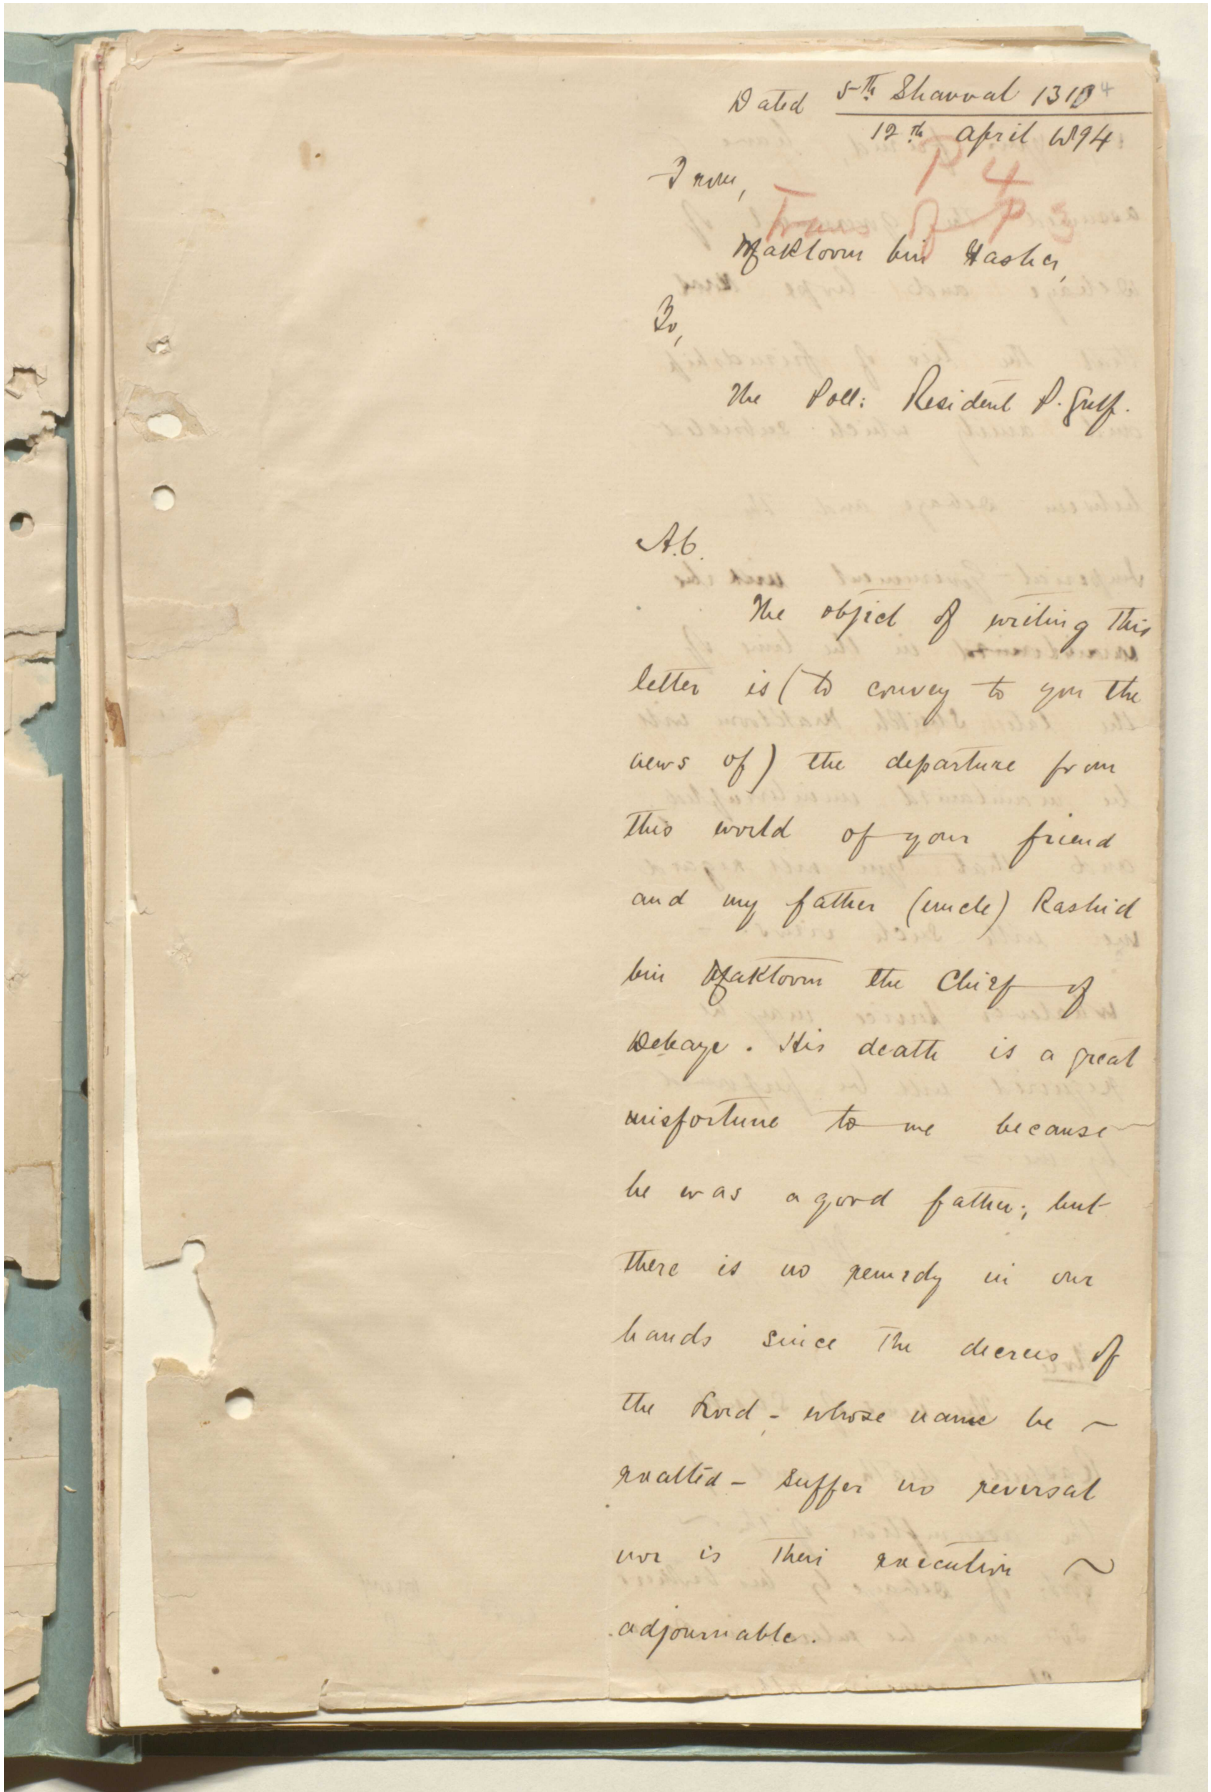 Dated 5th Shavval 131
12th April 1894
P 4
From,
Trans of P 3
Maktoom bin Hasher,
To,
The Poll: Resident P. Gulf.
A.C.
The object of writing this
letter is (to convey to you the
news of) the departure from
this world of your friend
and my father (uncle) Rashid
bin Maktoom the Chief of
Debaye. His death is a great
misfortune to me because
he was a good father; but
there is no remedy in our
hands since the decrees of
the Lord - whose name be ~
exalted - suffer no reversal
nor is their execution ~
adjournable.